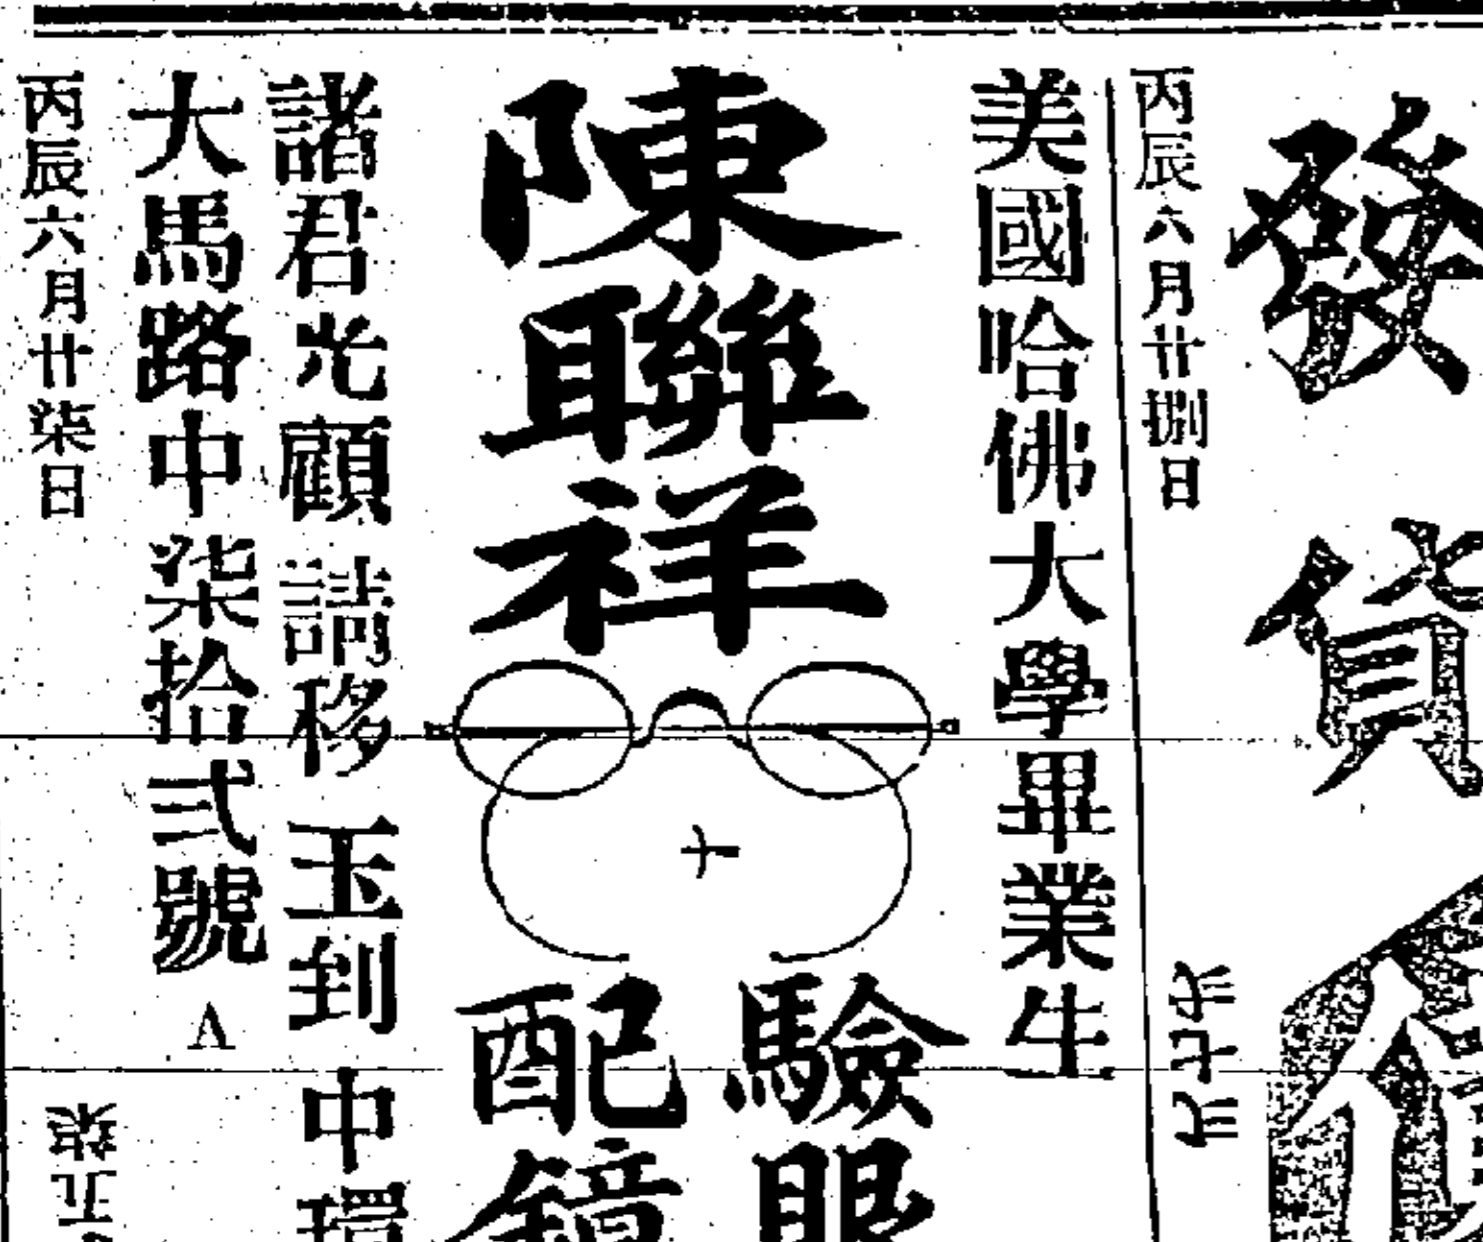 發貨
丙辰六月廿捌日
美國哈佛大學畢業生
陳聯祥
驗眼
配鏡
諸君光顧請移玉到中環
大馬路中柒拾弍號
丙辰六月廿柒日